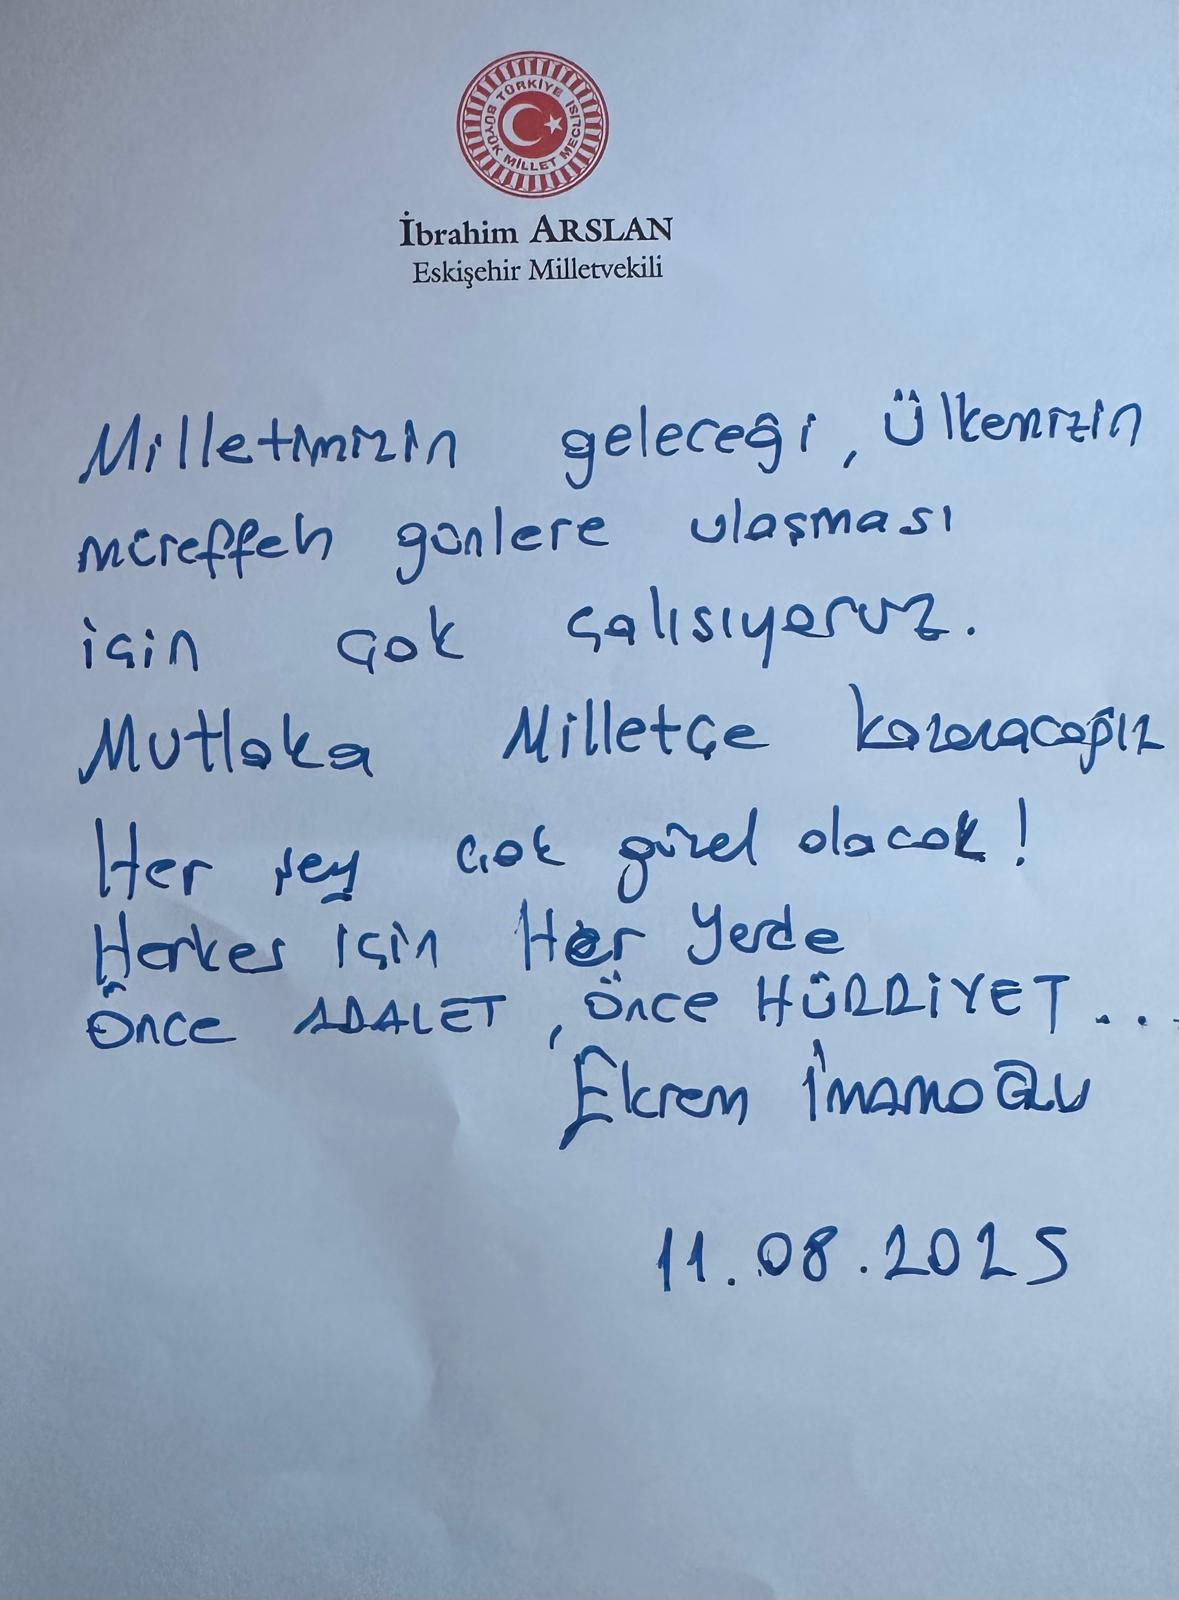 TÜRKİYE BÜYÜK MİLLET MECLİSİ
İbrahim ARSLAN
Eskişehir Milletvekili
Milletimizin geleceği, Ülkemizin
müreffeh günlere ulaşması
için çok çalışıyoruz.
Mutlaka Milletçe kazanacağız
Her şey çok güzel olacak!
Herkes için Her Yerde
Önce ADALET, Önce HÜRRİYET...
Ekrem İmamoğlu
11.08.2025